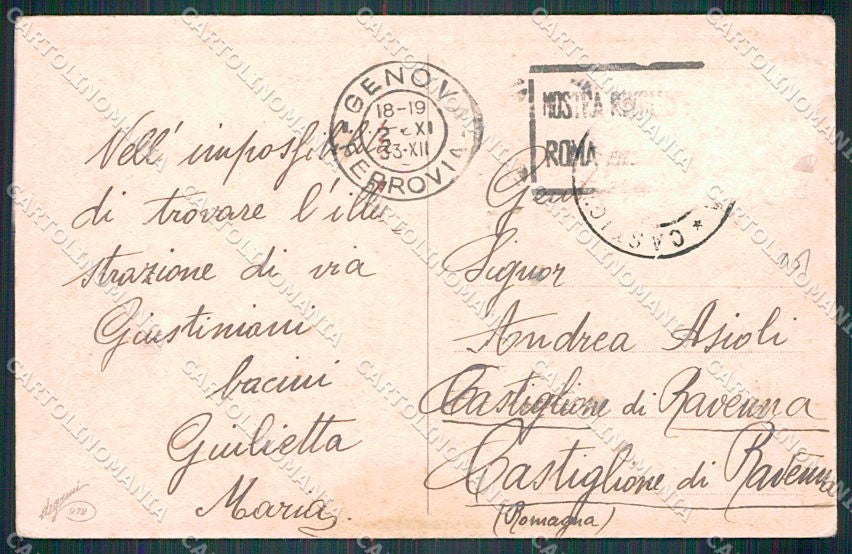 Nell' impossibiltà
di trovare l'illu
strazione di via
Giustiniani
bacini
Giulietta
Maria
degami
978
GENOVA
18-19
XI
33-XII
FERROVIA
MOSTRA
ROMA
CASTIG
Gen
Signor
Andrea Asioli
Castiglione di Ravenna
Castiglione di Ravenna
(Romagna)
CARTOLINOMANIA